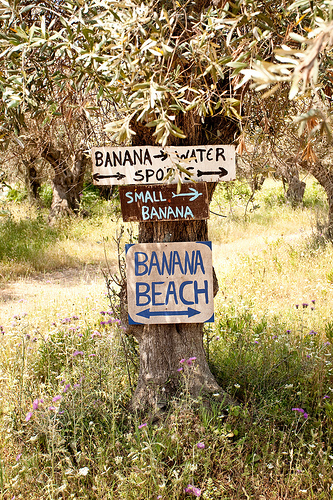 BANANA → WATER
← SPO →
SMALL →
BANANA
BANANA
BEACH
↔